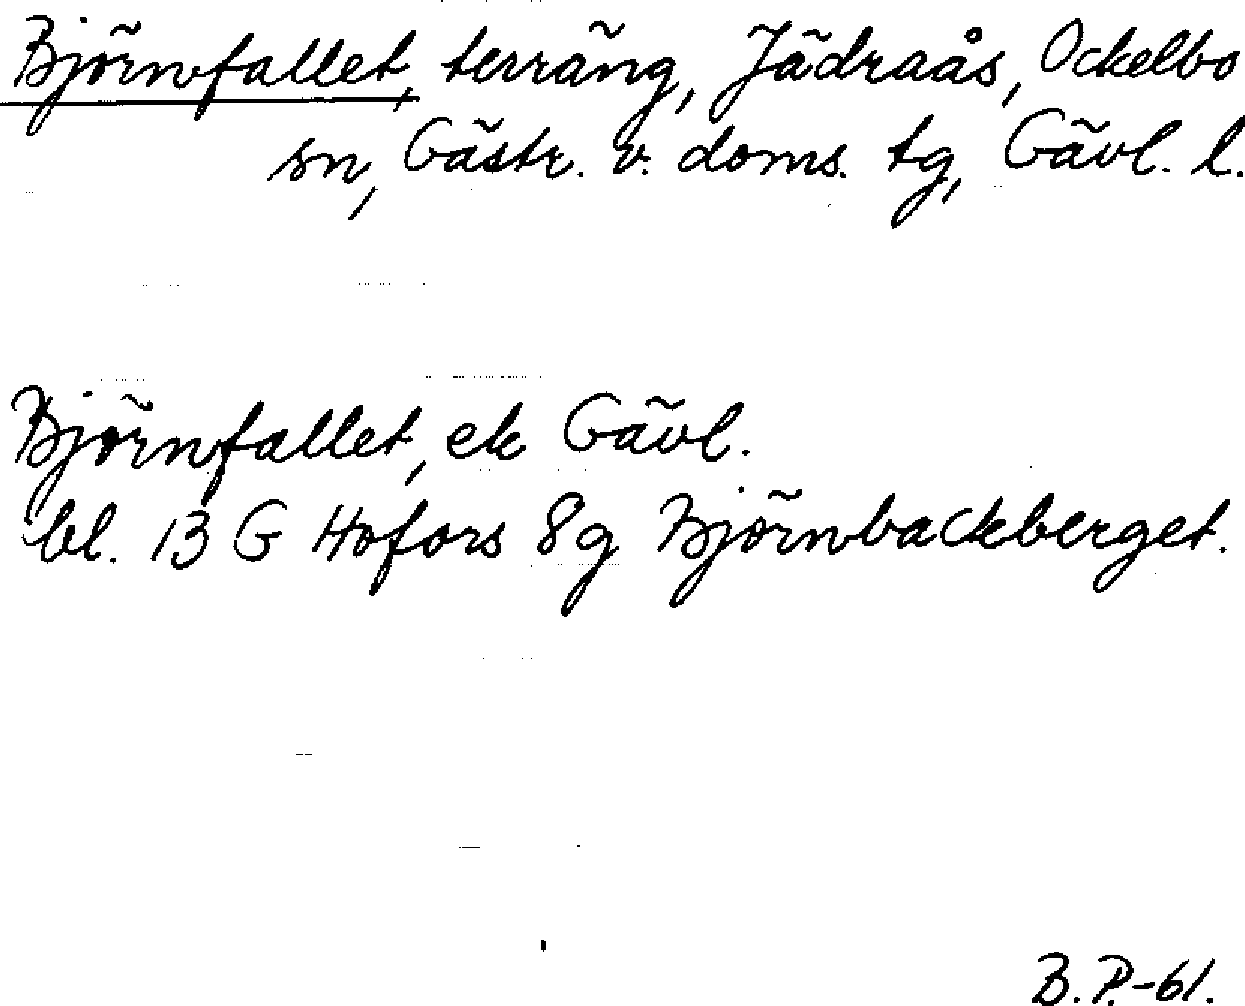 Björnfallet, terräng, Jädraås, Ockelbo
sn, Gästr. v. doms. tg, Gävl. l.
Björnfallet, ek Gävl.
bl. 13 G Hofors 8g Björnbackberget.
B.P.-61.